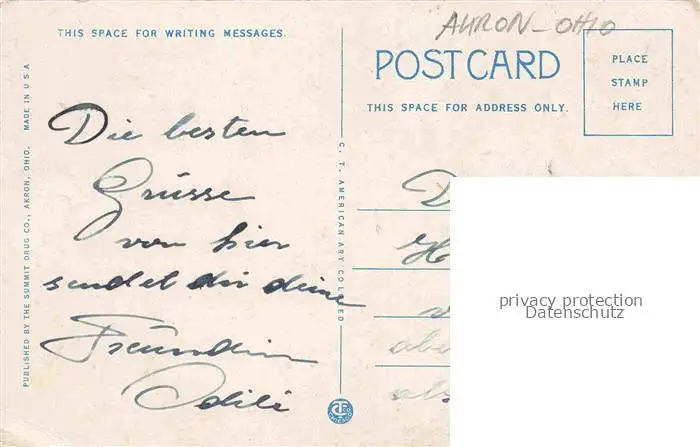 AKRON - OHIO
THIS SPACE FOR WRITING MESSAGES.
POST CARD
THIS SPACE FOR ADDRESS ONLY.
PLACE
STAMP
HERE
Die besten
Grüsse
von hier
sendet dir deine
Freundin
Odili
PUBLISHED BY THE SUMMIT DRUG CO., AKRON, OHIO. MADE IN U.S.A
C. T. AMERICAN ART COLORED
privacy protection
Datenschutz